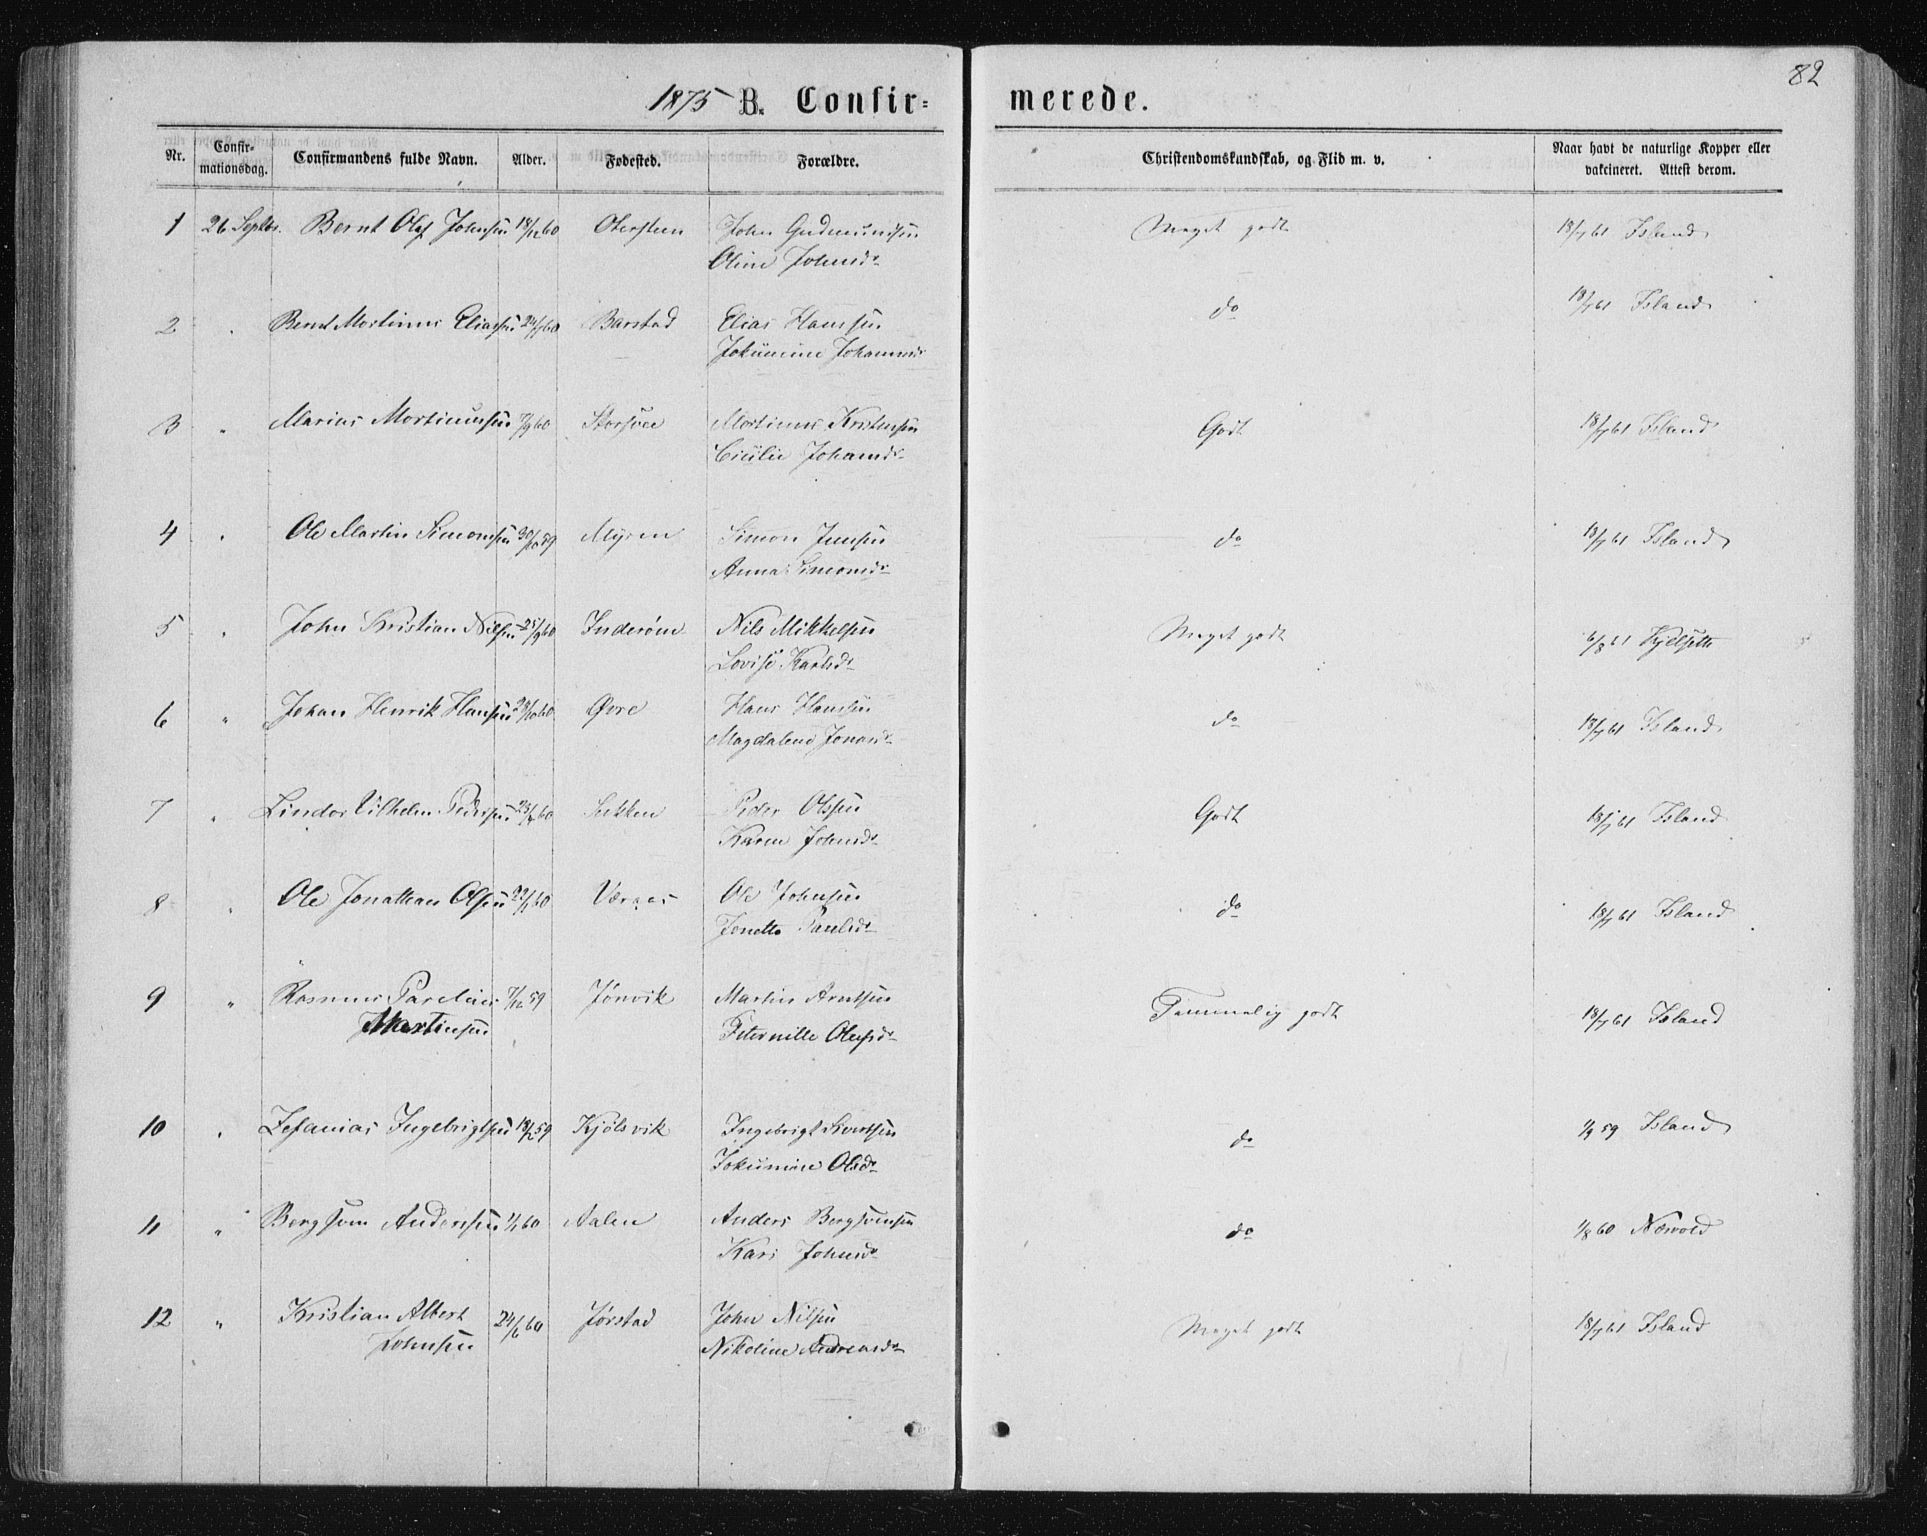 82
1875 B. Confirmerede.
Nr. Confirmationsdag. Confirmandens fulde Navn. Alder. Fødested. Forældre. Christendomskundskab, og Flid m. v. Naar havt de naturlige Kopper eller vakcineret. Attest derom.
1 26 Septbr. Bernt Olaf Johnsen 18/12 60 Otersteen John Gudmundsen Meget godt 18/7 61 Island
Oline Johnsdr
2 " Bernt Martinus Eliassen 24/7 60 Barstad Elias Hansen do 18/7 61 Island
Jokumine Johannesdr
3 " Marius Martinussen 7/9 60 Martinus Kristensen Godt 18/7 61 Island
Cicilie Johansdr
4 " Ole Martin Simonsen 30/10 59 Myren Simon Jensen do 18/7 61 Island
Anna Simonsdr
5 " John Kristian Nilsen 25/9 60 Inderøen Nils Mikkelsen Meget godt 6/8 61
Lovise Karlsdr
6 " Johan Henrik Hansen 28/10 60 Øvre Hans Hansen do 18/7 61 Island
Magdalena Jonasdr
7 " Lindor Vilhelm Pedersen 23/4 60 Sukken Peder Olssen Godt 18/7 61 Island
Karen Johnsdr
8 " Ole Jonathan Olsen Værnes Ole Johnsen do 18/7 61 Island
Jonetta Paulsdr
9 " Rasmus Parelius 7/12 59 Jønvik Martin Arntsen Temmelig godt 18/7 61 Island
Martinsen Peternille Olausdr
10 " Zefanias Ingebrigtsen 18/2 59 Kjølsvik Ingebrigt Sivertsen do 1/9 59 Island
Jokumine Olsdr
11 " Bergsven Andersen 1/1 60 Aalen Anders Bergsvensen do 1/8 60 Nævold
Kari Johnsdr
12 " Kristian Albert 24/6 60 Jørstad John Nilsen Meget godt 18/7 61 Island
Johnsen Nikoline Andreasdr